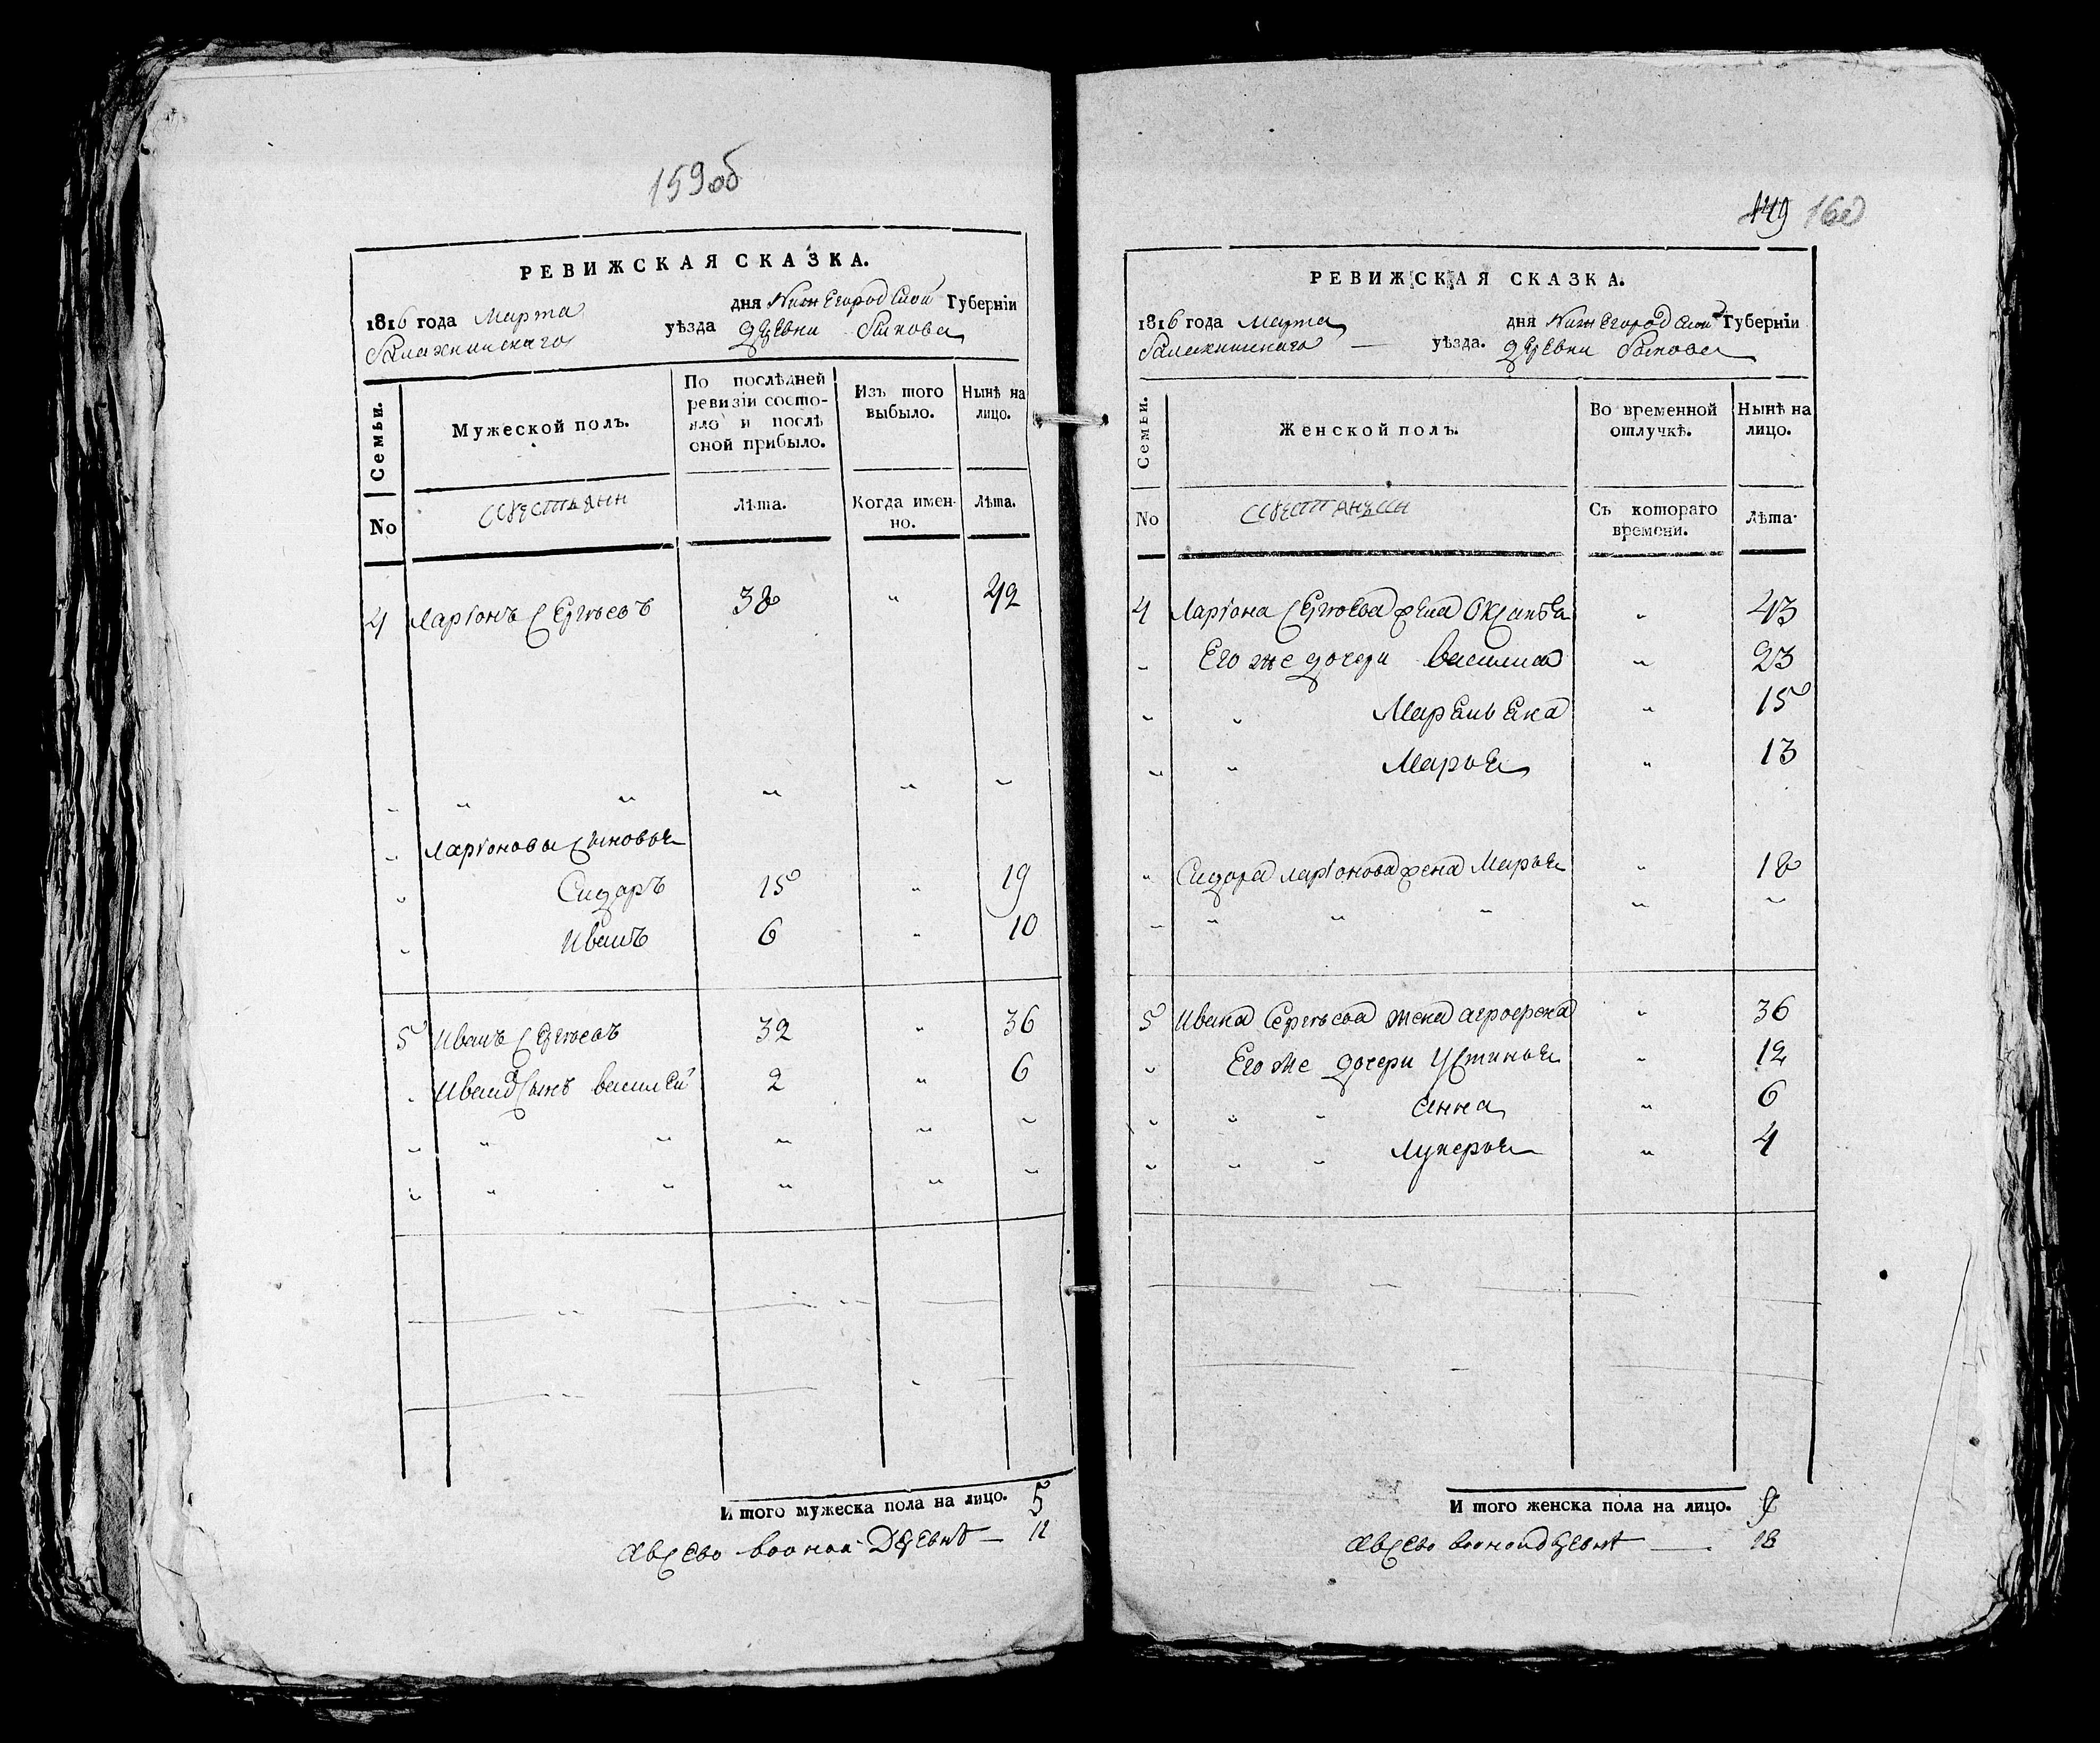 159об
РЕВИЖСКАЯ СКАЗКА.
1816 года Марта дня Нижегородской Губернїи
Балахнинскаго уѣзда деревни Быкова
Семьи.
Мужеской полъ.
По послѣдней ревизїи состояло и послѣ оной прибыло.
Изъ того выбыло.
Нынѣ на лицо.
No
Лѣта.
Когда именно.
Лѣта.
4 Ларїонъ Сергѣевъ 38 " 42
" " " " " "
" Ларїоновы Сыновья
" Сидоръ 15 " 19
" Иванъ 6 " 10
5 Иванъ Сергѣевъ 32 " 36
" Ивана Сынъ Василей 2 " 6
" " " " " "
" " " " " "
И того мужеска пола на лицо. 5
А всево во оной Деревнѣ — 12
149 160
РЕВИЖСКАЯ СКАЗКА.
1816 года Марта дня Нижегородской Губернїи
Балахнинскаго — уѣзда. деревни Быкова
Семьи.
Женской полъ.
Во временной отлучкѣ.
Нынѣ на лицо.
No
Съ котораго времени.
Лѣта.
4 Ларїона Сергѣева жена Оксинья " 43
" Его же дочери Василиса " 23
" " Маремьяна " 15
" " Марья " 13
" Сидора Ларїонова жена Марья " 18
" " " " " "
5 Ивана Сергѣева жена Агрофена " 36
" Его же дочери Устинья " 12
" " " Анна " 6
" " " Лукерья " 4
И того женска пола на лицо. 9
А всево во оной деревнѣ — 18